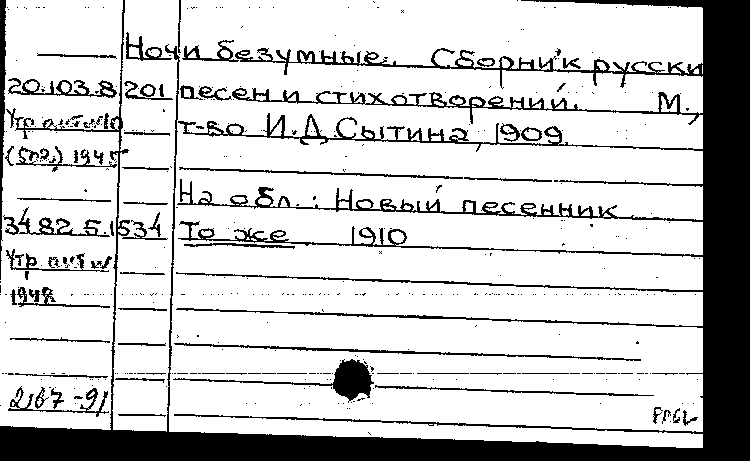 Ночи безумные. Сборник русски
20.103.8.201 песен и стихотворений. М.,
Утр акт №10 т-во И.Д Сытина, 1909.
(502) 1945
На обл.: Новый песенник
34.82.5.1534 То же 1910
Утр акт №1
1948
2167-91